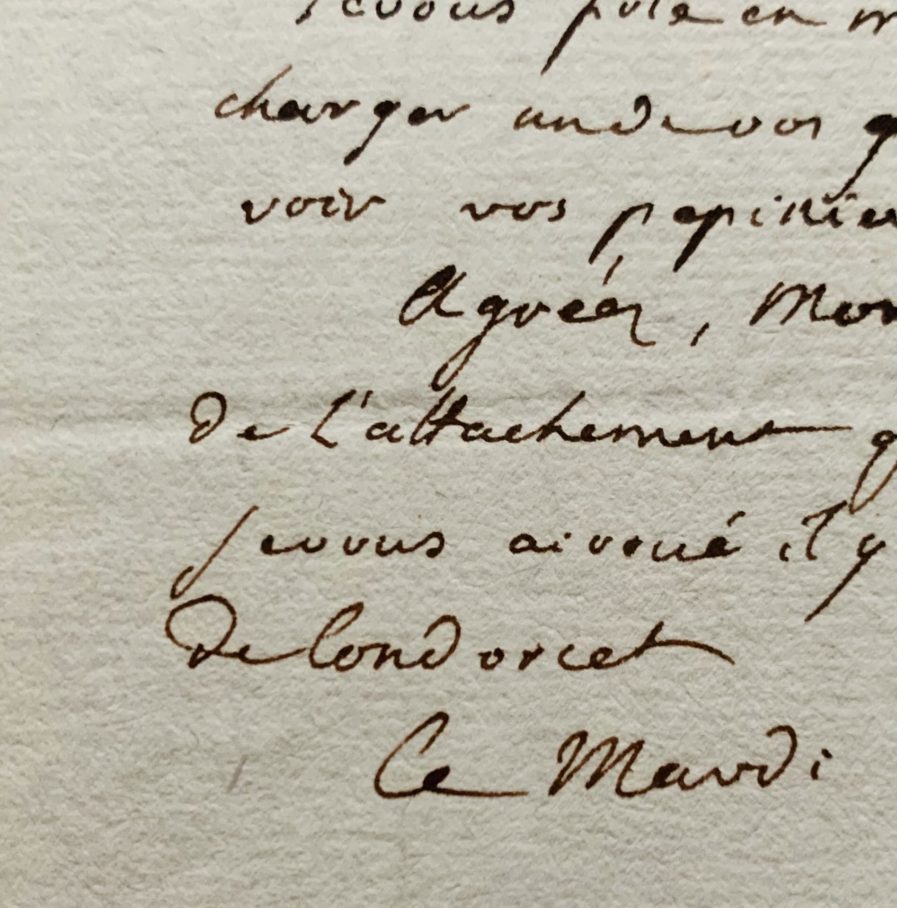 je vous prie en
charger un de vos
voir vos pepinie
Agréez, Mon
de l'attachement q
je vous ai voué il y
De Condorcet
Ce Mardi